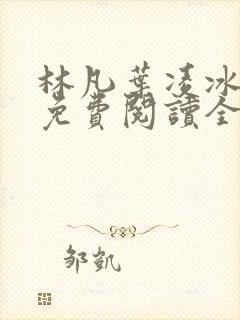 林凡葉凌冰
免費閱讀全
邹凯